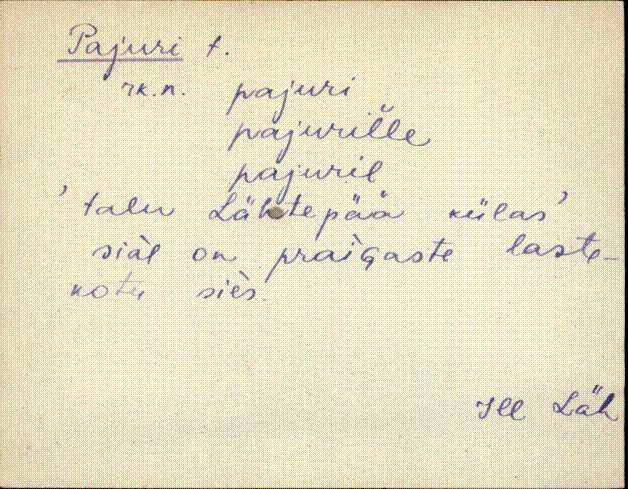 Pajuri t.
rk.n. pajuri
pajuriĺle
pajuril
'talu Lähtepää külas'
siàl on praìGaste laste-
kotu siès.
Jll Läh